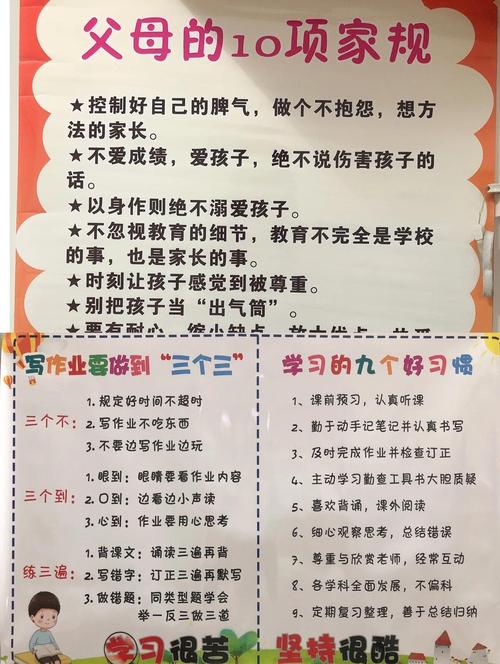 父母的10项家规
★控制好自己的脾气，做个不抱怨，想方
法的家长。
★不爱成绩，爱孩子，绝不说伤害孩子的
话。
★以身作则绝不溺爱孩子。
★不忽视教育的细节，教育不完全是学校
的事，也是家长的事。
★时刻让孩子感觉到被尊重。
★别把孩子当“出气筒”。
★要有耐心，缩小缺点，放大优点
写作业要做到“三个三”
三个不：
1. 规定好时间不超时
2. 写作业不吃东西
3. 不要边写作业边玩
三个到：
1. 眼到：眼睛要看作业内容
2. 口到：边看边小声读
3. 心到：作业要用心思考
练三遍：
1. 背课文：诵读三遍再背
2. 写错字：订正三遍再默写
3. 做错题：同类型题学会
举一反三做三道
学习很苦
学习的九个好习惯
1、课前预习，认真听课
2、勤于动手记笔记并认真书写
3、及时完成作业并检查订正
4、主动学习勤查工具书大胆质疑
5、喜欢背诵，课外阅读
6、细心观察思考，总结错误
7、尊重与欣赏老师，经常互动
8、各学科全面发展，不偏科
9、定期复习整理，善于总结归纳
坚持很酷